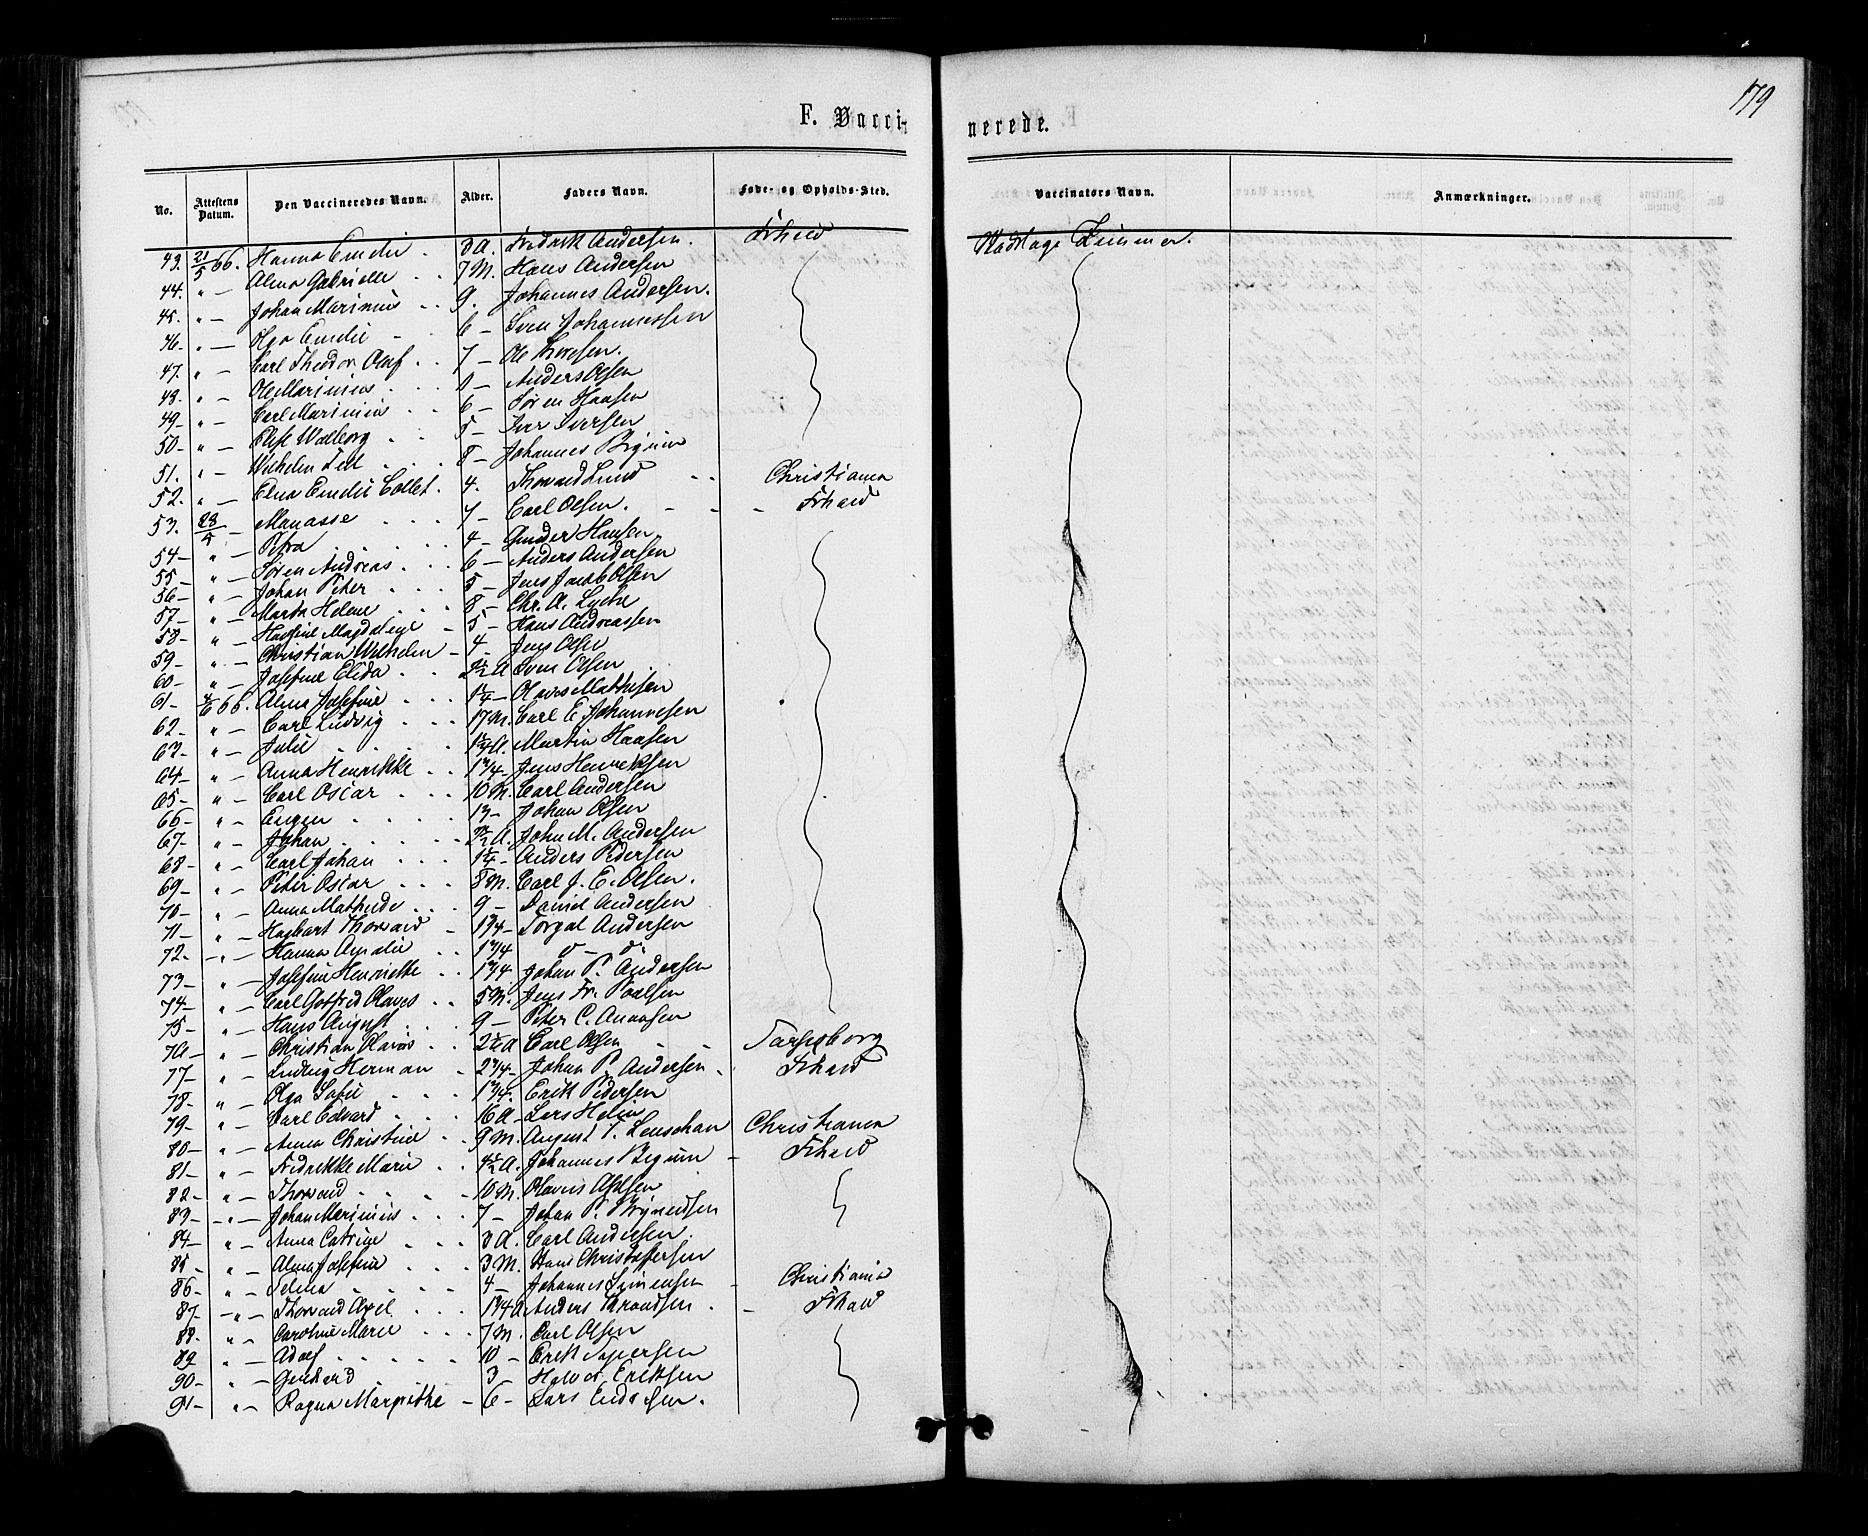 179
F. Vaccinerede.
No. Attestens Datum. Den Vaccineredes Navn. Alder. Faders Navn. Føde- og Opholds-Sted. Vaccinators Navn. Anmærkninger.
43. 21/5 66. Hanna Emelie . 3 A. Fredrik Andersen. Frhald Stadslæge Zimmer.
44. " — Alma Gabrielle . . 7 M. Hans Andersen
45. " — Johan Marinius . . 9. Johannes Andersen.
46 — " — Emelie — 6 — Sven Johannessen
47. " — Carl Theodor Olaf . . 7 — Ole
48. " — Ole Marinius . . . Anders Olsen
49 — " — Carl Marinius . . 6 — Søren Hansen
50 — " — Elise Walborg . . 5 — Iver Iversen
51. " — Wilhelm . . . 8 — Johannes
52. " — Emelie Collet . 4. Thorvald Lund . . Christiania
53. 28/5 — Manasse . . . 7 — Carl Olsen . — — — Frhald
54 — " — Petra . . . . . 4 — Gunder Hansen
55 — " — Søren Andreas . . . 6 — Anders Andersen
56 — " — Johan Peter . . . . 5 — Jens Jacob Olsen
57 — " — Marta Helene . . . 8 — Chr. A. Lyche
58 — " — Magdalene — 5 — Hans Andreassen
59 — " — Christian Wilhelm — 4 — Jens Olsen
60 — " — Josefine Elida . . 2½ A Sven Olsen
61 — 4/6 66. Alma Josefine . . . 1¼ — Olaves Mathisen
62 — " — Carl Ludvig . . . 17 M. Carl E. Johannesen
63 — " — Julie . . . . Martin Hansen
64 — " — Anna Henrikke . . 1¾ — Jens Henriksen
65 — " — Carl Oscar . . . 10 M. Carl Andersen
66 — " — Eugen . . . . . 13 — Johan Olsen
67 — " — Johan . . . . . . 2½ A. John M. Andersen
68 — " — Carl Johan . . . 1¼ — Anders Pedersen
69 — " — Peter Oscar . . . 8 M. Carl J. E. Olsen.
70 — " — Anna Mathilde . . . 9 — Daniel Andersen
71 — " — Hagbart Thorvald — 1¾ — Torgal Andersen
72 — — " — Hanna Amalie . . 1¾
73 — " — Josefine Henriette . . 1¾ Johan P. Andersen
74 — " — Carl Gotfred Olaves . . 5 M. Jens Fr. Poulsen
75 — " — Hans August . . . . 9 — Peter C. Amansen
76 — " — Christian Olavus . . 2½ A Carl Olsen — — Sarpsborg
77 — " — Ludvig Herman — 2¾ — Johan P. Andersen . Frhald
78 — " — Olga Sofie . . . 1¾. Erik Pedersen
79 — " — Carl Edvard . . . 16 A — Lars Helin
80 — " — Anna Christine . . 9 M. August T. Leuschan Christiania
81 — " — Fredrikke Marie . . 4½ A. Johannes — Frhald
82 — " — Thorvald . . . . 10 M. Olavus
83 — — " — Johan Marinius . . . 7 — Johan P.
84 — " — Anna Catrine . . . 3 A. Carl Andersen.
85 — " — Alma Josefine . . . 3 M. Hans Christoffersen
86 — " — Selma . . . . . 4 — Johannes Simensen — Christiania
87 — — " — Thorvald Axel . . . 1¾ A Anders . — Frhald
88 — " — Caroline Marie . . . 7 M. Carl Olsen
89 " — Adolf . . . . . 10 — Erik
90 — " — . . . . 3 — Halvor Eriksen
91 — " — Ragna Margrethe — 6 — Lars